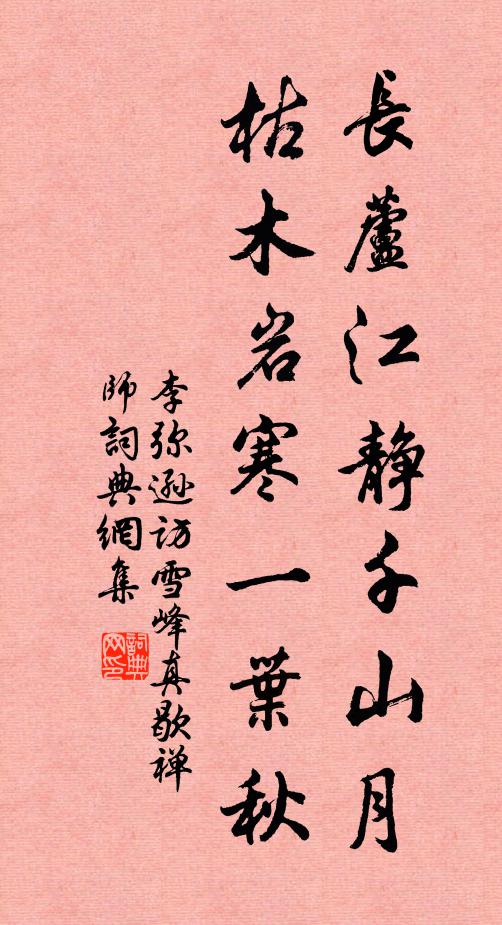 長蘆江静千山月
枯木岩寒一葉秋
李弥遜访雪峰真歇禅
師詞典網集
詞典
网印